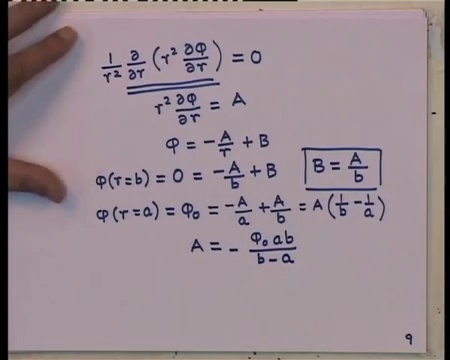 1/r² ∂/∂r (r² ∂φ/∂r) = 0
r² ∂φ/∂r = A
φ = -A/r + B
φ(r=b) = 0 = -A/b + B   B = A/b
φ(r=a) = φ₀ = -A/a + A/b = A(1/b - 1/a)
A = - φ₀ab/(b-a)
9